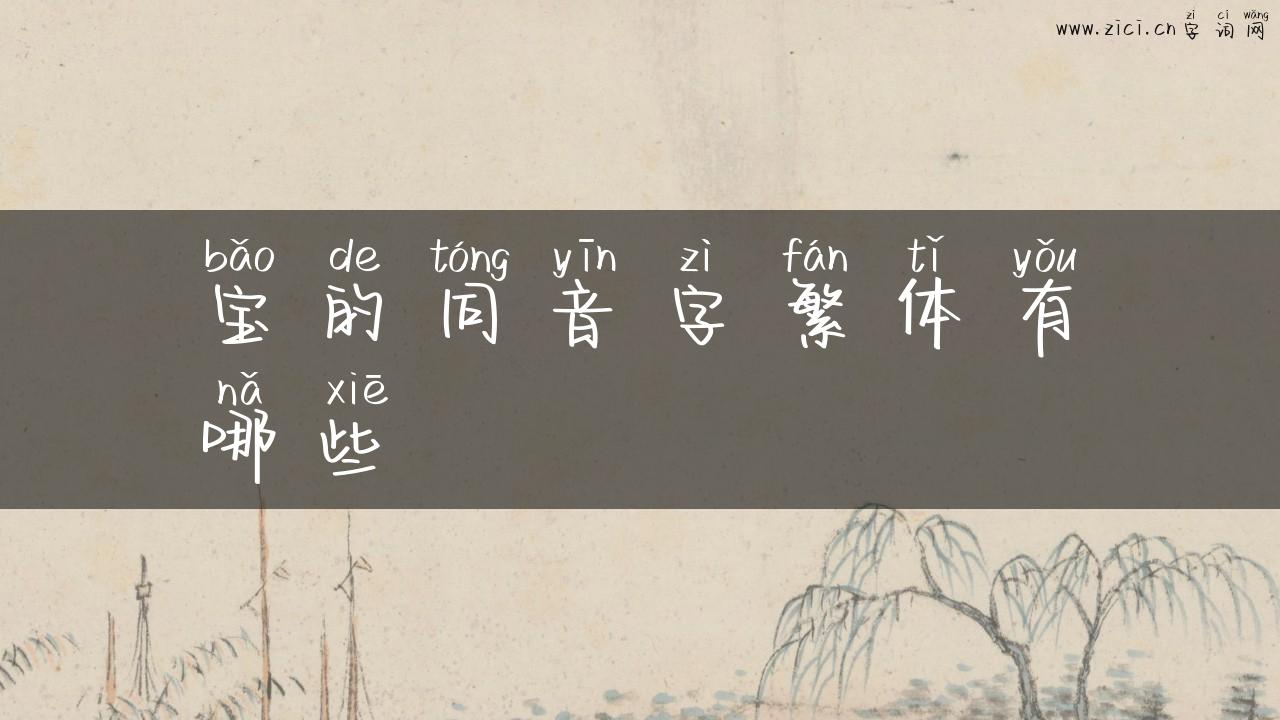 zì cí wǎng
www.zici.cn 字词网
bǎo de tóng yīn zì fán tǐ yǒu
宝的同音字繁体有
nǎ xiē
哪些